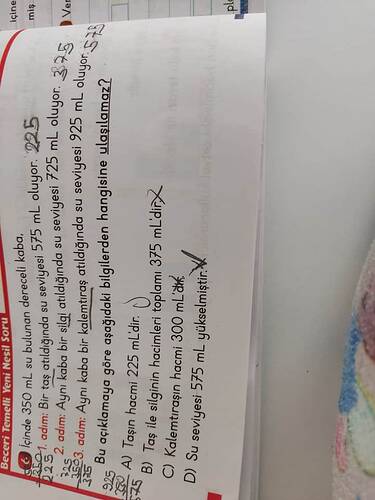 içine
miş.
Ver
pla
Beceri Temelli Yeni Nesil Soru
İçinde 350 mL su bulunan dereceli kaba,
1. adım: Bir taş atıldığında su seviyesi 575 mL oluyor. 225
2. adım: Aynı kaba bir silgi atıldığında su seviyesi 725 mL oluyor. 375
3. adım: Aynı kaba bir kalemtıraş atıldığında su seviyesi 925 mL oluyor. 575
Bu açıklamaya göre aşağıdaki bilgilerden hangisine ulaşılamaz?
A) Taşın hacmi 225 mL'dir.
B) Taş ile silginin hacimleri toplamı 375 mL'dir.
C) Kalemtıraşın hacmi 300 mL'dir.
D) Su seviyesi 575 mL yükselmiştir.
350
225
725
350
375
925
350
575